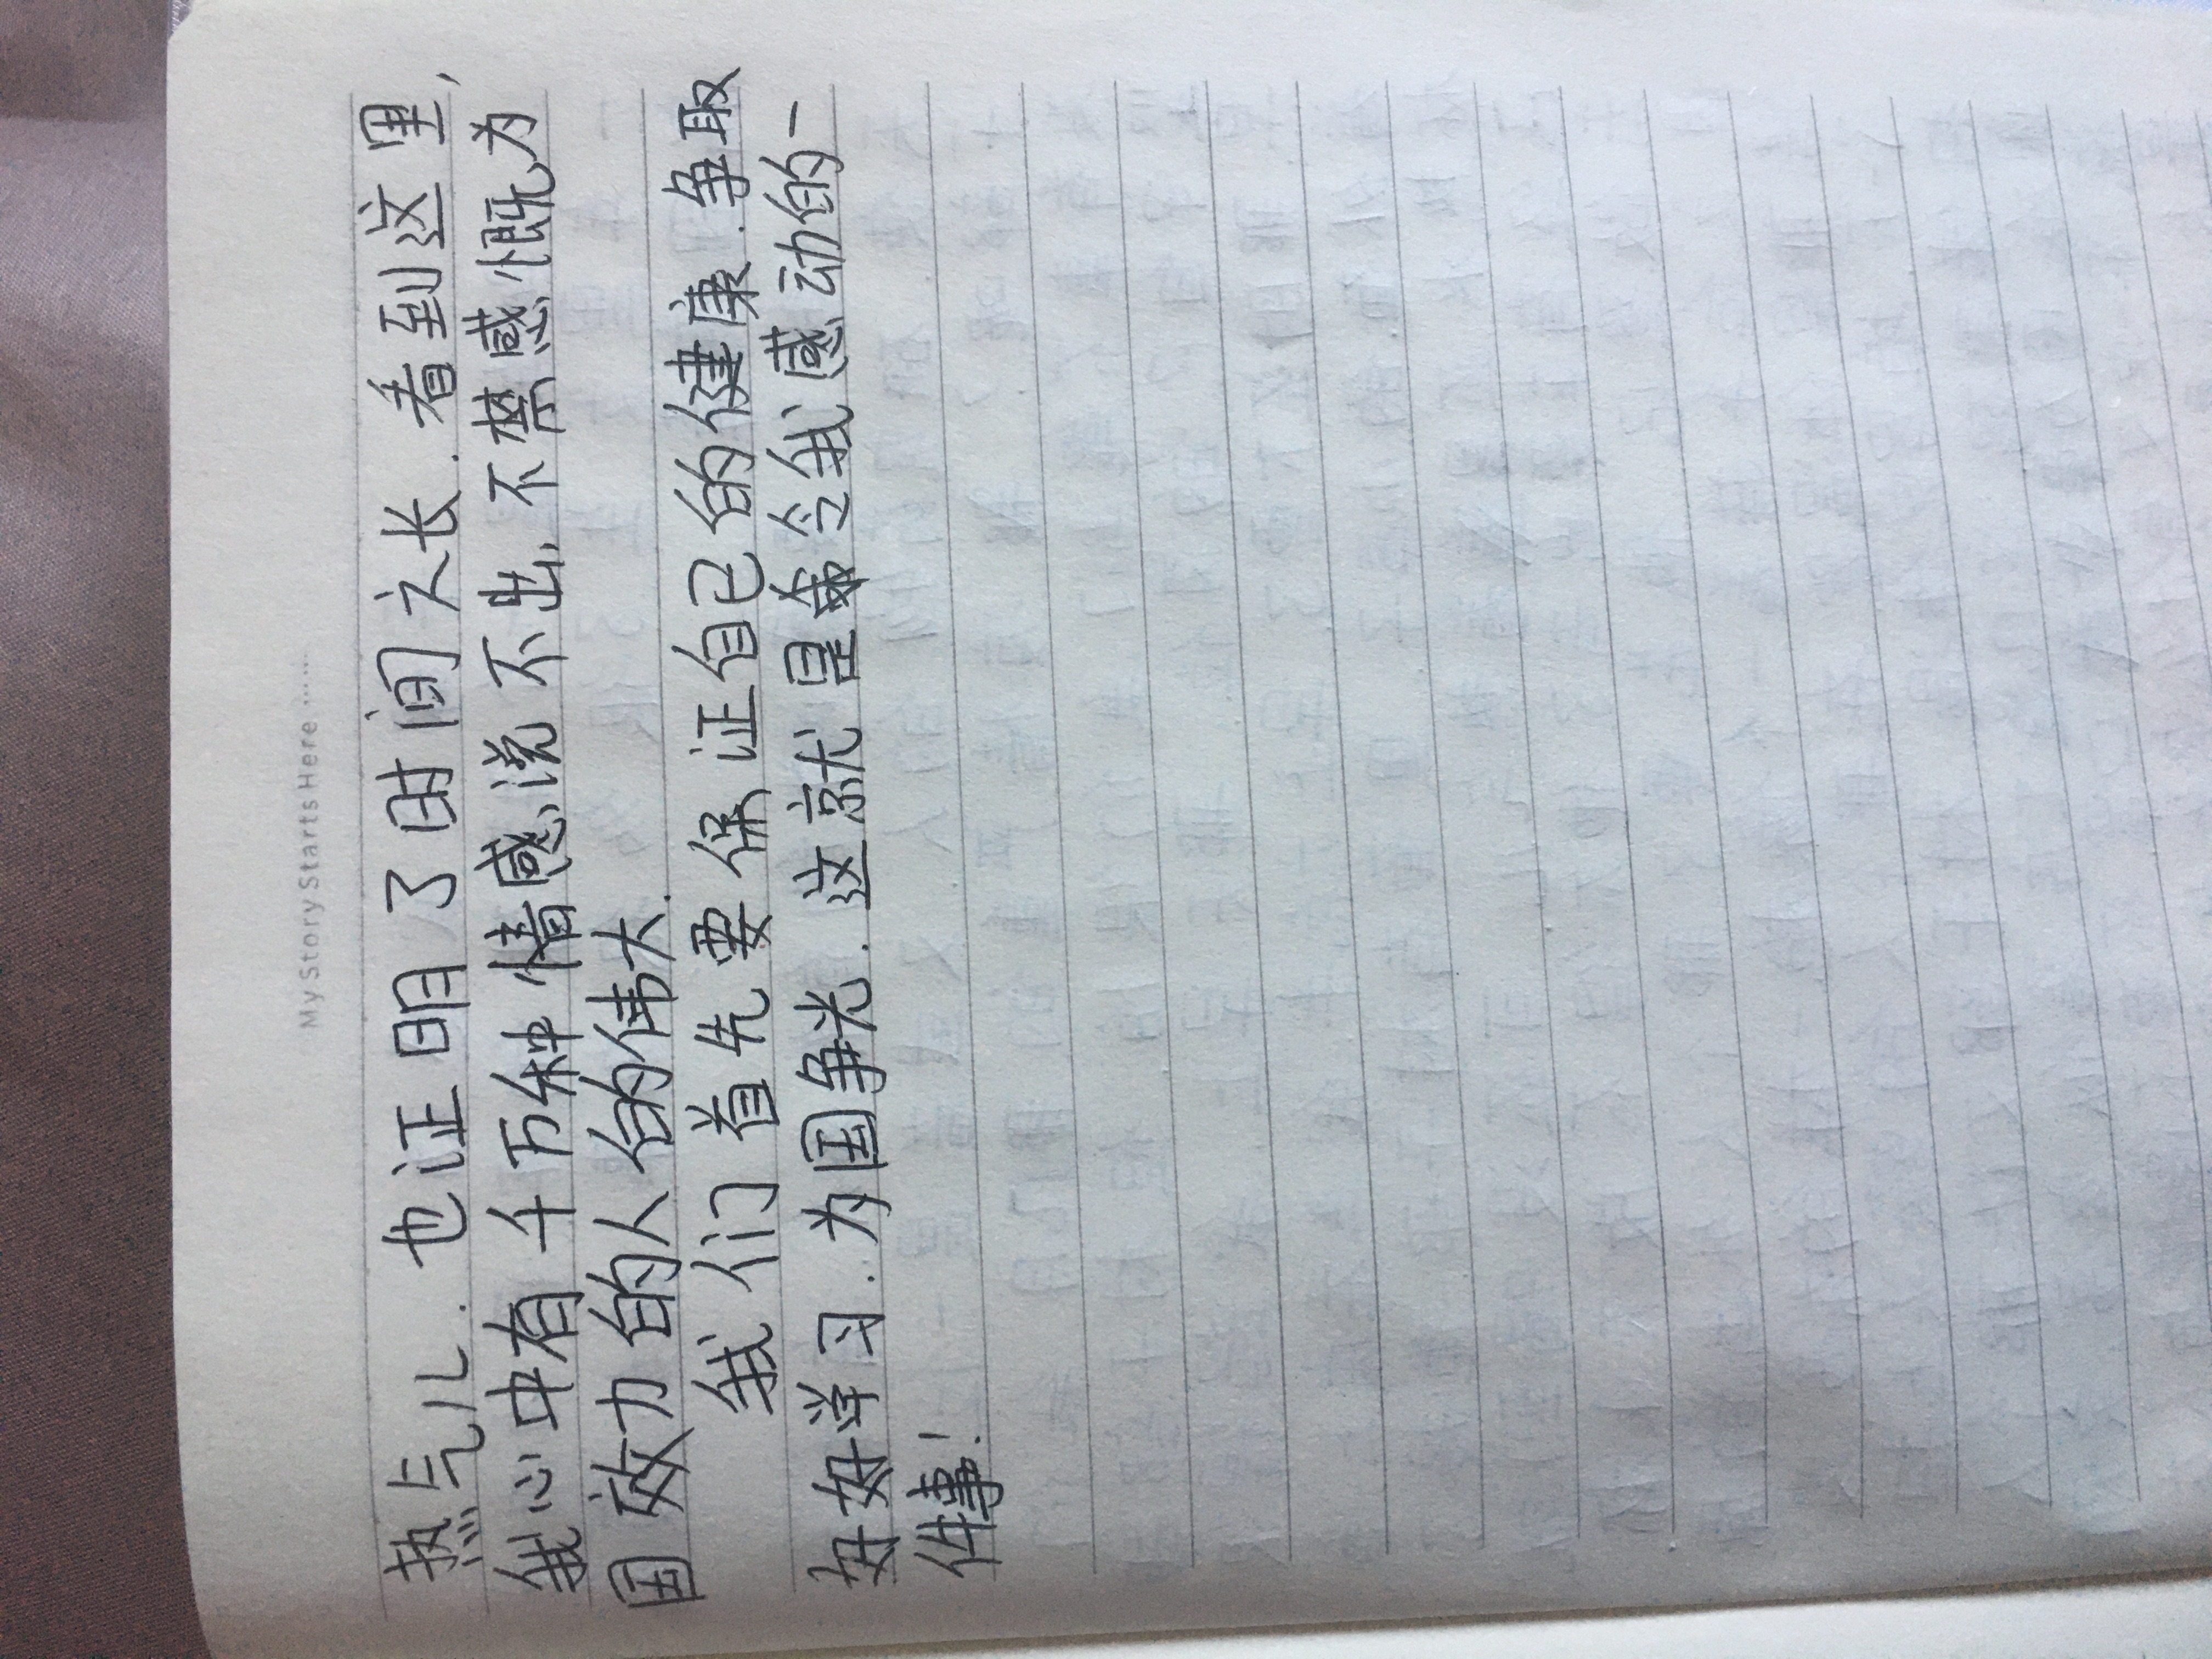 My Story Starts Here ……
热气儿.也证明了时间之长.看到这里,
我心中有千万种情感流不出,不禁感慨为
国效力的人的伟大.
我们首先要保证自己的健康.争取
好好学习.为国争光.这就是令我感动的一
件事!